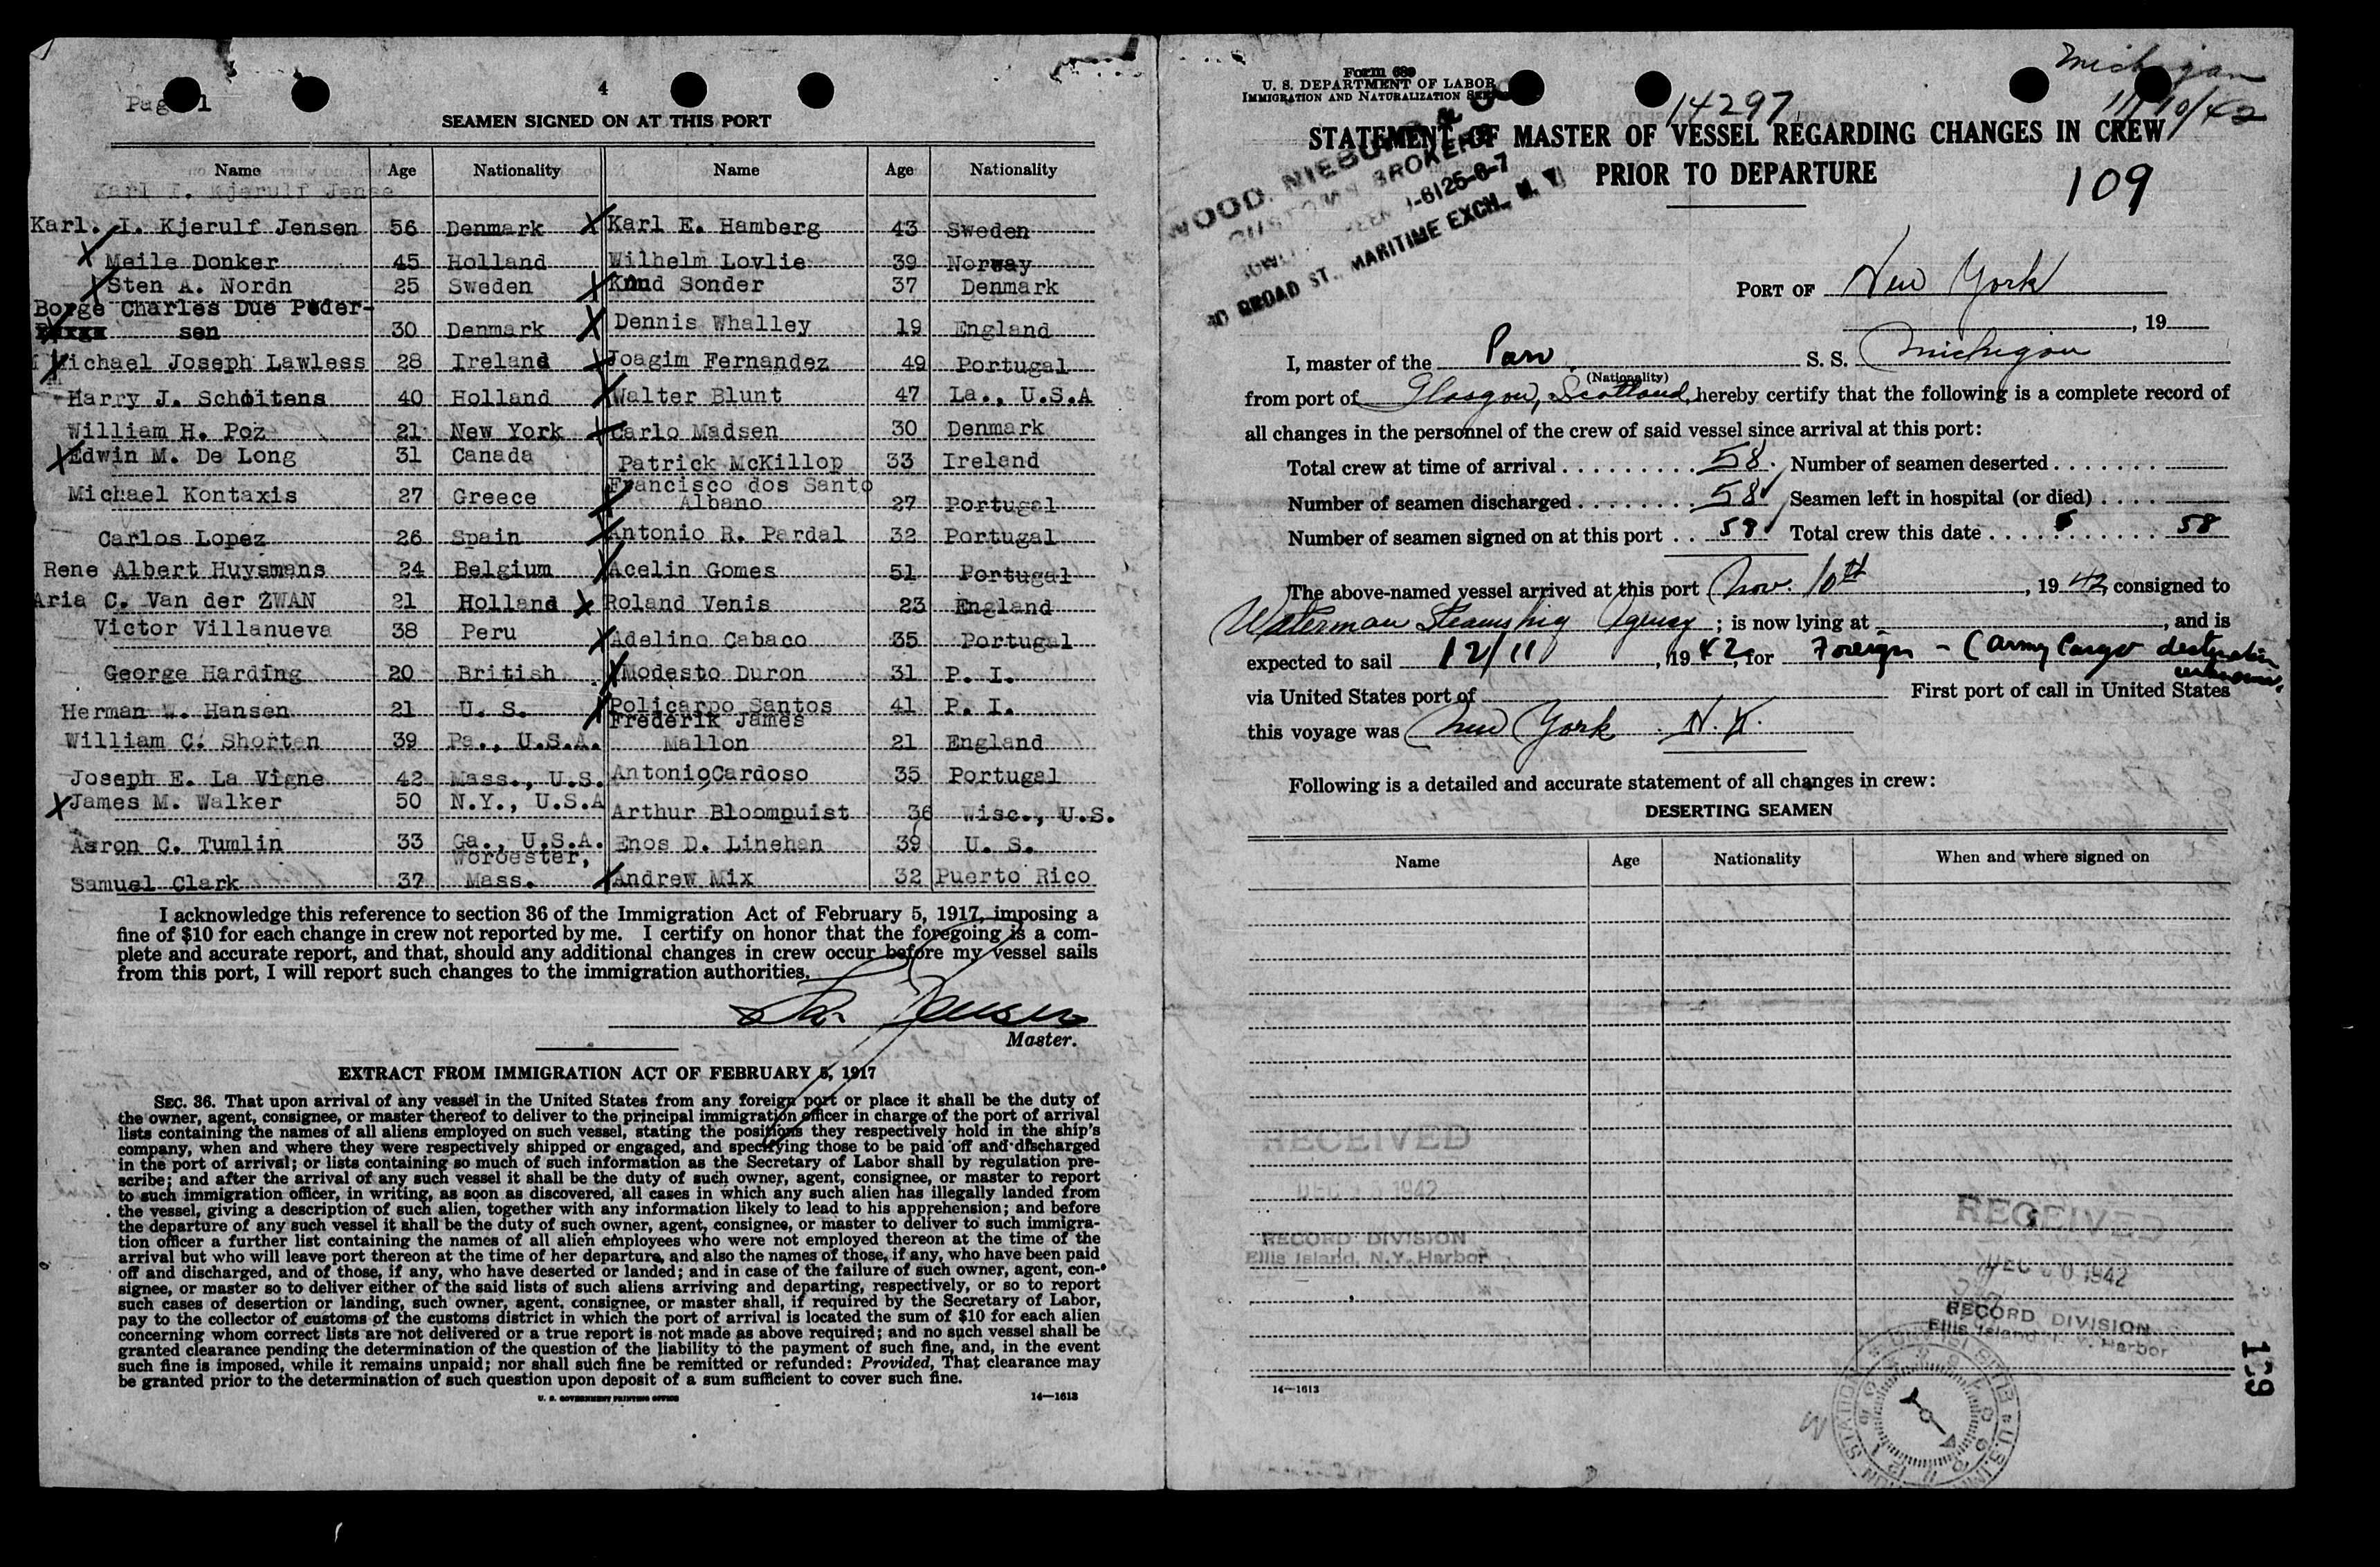 Page 1
4
SEAMEN SIGNED ON AT THIS PORT
Name Age Nationality Name Age Nationality
Karl I. Kjerulf Jense
Karl. I. Kjerulf Jensen 56 Denmark X Karl E. Hamberg 43 Sweden
X Meile Donker 45 Holland Wilhelm Lovlie 39 Norway
X Sten A. Nordn 25 Sweden X Knud Sonder 37 Denmark
Borge Charles Due Peder-
sen 30 Denmark X Dennis Whalley 19 England
Michael Joseph Lawless 28 Ireland X Joagim Fernandez 49 Portugal
Harry J. Schoitens 40 Holland X Walter Blunt 47 La., U.S.A
William H. Poz 21 New York X Carlo Madsen 30 Denmark
X Edwin M. De Long 31 Canada Patrick McKillop 33 Ireland
Michael Kontaxis 27 Greece X Francisco dos Santo
Albano 27 Portugal
Carlos Lopez 26 Spain X Antonio R. Pardal 32 Portugal
Rene Albert Huysmans 24 Belgium X Acelin Gomes 51 Portugal
Aria C. Van der ZWAN 21 Holland X Roland Venis 23 England
Victor Villanueva 38 Peru X Adelino Cabaco 35 Portugal
George Harding 20 British X Modesto Duron 31 P. I.
Herman W. Hansen 21 U. S. X Policarpo Santos 41 P. I.
William C. Shorten 39 Pa., U.S.A. Frederik James
Mallon 21 England
Joseph E. La Vigne 42 Mass., U.S. Antonio Cardoso 35 Portugal
X James M. Walker 50 N.Y., U.S.A Arthur Bloomquist 36 Wisc., U.S.
Aaron C. Tumlin 33 Ga., U.S.A. Enos D. Linehan 39 U. S.
Samuel Clark 37 Worcester, Mass. X Andrew Mix 32 Puerto Rico
I acknowledge this reference to section 36 of the Immigration Act of February 5, 1917, imposing a
fine of $10 for each change in crew not reported by me. I certify on honor that the foregoing is a com-
plete and accurate report, and that, should any additional changes in crew occur before my vessel sails
from this port, I will report such changes to the immigration authorities.
Jensen
Master.
EXTRACT FROM IMMIGRATION ACT OF FEBRUARY 5, 1917
SEC. 36. That upon arrival of any vessel in the United States from any foreign port or place it shall be the duty of
the owner, agent, consignee, or master thereof to deliver to the principal immigration officer in charge of the port of arrival
lists containing the names of all aliens employed on such vessel, stating the positions they respectively hold in the ship's
company, when and where they were respectively shipped or engaged, and specifying those to be paid off and discharged
in the port of arrival; or lists containing so much of such information as the Secretary of Labor shall by regulation pre-
scribe; and after the arrival of any such vessel it shall be the duty of such owner, agent, consignee, or master to report
to such immigration officer, in writing, as soon as discovered, all cases in which any such alien has illegally landed from
the vessel, giving a description of such alien, together with any information likely to lead to his apprehension; and before
the departure of any such vessel it shall be the duty of such owner, agent, consignee, or master to deliver to such immigra-
tion officer a further list containing the names of all alien employees who were not employed thereon at the time of the
arrival but who will leave port thereon at the time of her departure, and also the names of those, if any, who have been paid
off and discharged, and of those, if any, who have deserted or landed; and in case of the failure of such owner, agent, con-
signee, or master so to deliver either of the said lists of such aliens arriving and departing, respectively, or so to report
such cases of desertion or landing, such owner, agent, consignee, or master shall, if required by the Secretary of Labor,
pay to the collector of customs of the customs district in which the port of arrival is located the sum of $10 for each alien
concerning whom correct lists are not delivered or a true report is not made as above required; and no such vessel shall be
granted clearance pending the determination of the question of the liability to the payment of such fine, and, in the event
such fine is imposed, while it remains unpaid; nor shall such fine be remitted or refunded: Provided, That clearance may
be granted prior to the determination of such question upon deposit of a sum sufficient to cover such fine.
U. S. GOVERNMENT PRINTING OFFICE 14—1613
Form 689
U. S. DEPARTMENT OF LABOR
IMMIGRATION AND NATURALIZATION
Michigan
11/10/42
14297
STATEMENT OF MASTER OF VESSEL REGARDING CHANGES IN CREW
PRIOR TO DEPARTURE
109
WOOD, NIEBUHR & CO
CUSTOMS BROKERS
-6125-6-7
BROAD ST., MARITIME EXCH., N. Y.
PORT OF New York
, 19
I, master of the Pan. S. S. Michigan
(Nationality)
from port of Glasgow, Scotland, hereby certify that the following is a complete record of
all changes in the personnel of the crew of said vessel since arrival at this port:
Total crew at time of arrival 58. Number of seamen deserted
Number of seamen discharged 58 Seamen left in hospital (or died)
Number of seamen signed on at this port 58 Total crew this date 58
The above-named vessel arrived at this port Nov. 10th, 1942 consigned to
Waterman Steamship Agency; is now lying at , and is
expected to sail 12/11, 1942, for Foreign - (Army Cargo destination
unknown.
via United States port of First port of call in United States
this voyage was New York N.Y.
Following is a detailed and accurate statement of all changes in crew:
DESERTING SEAMEN
Name Age Nationality When and where signed on
RECEIVED
DEC 1942
RECORD DIVISION
Ellis Island, N.Y. Harbor
RECEIVED
DEC 1942
RECORD DIVISION
Ellis Island, N. Y. Harbor
14—1613
139